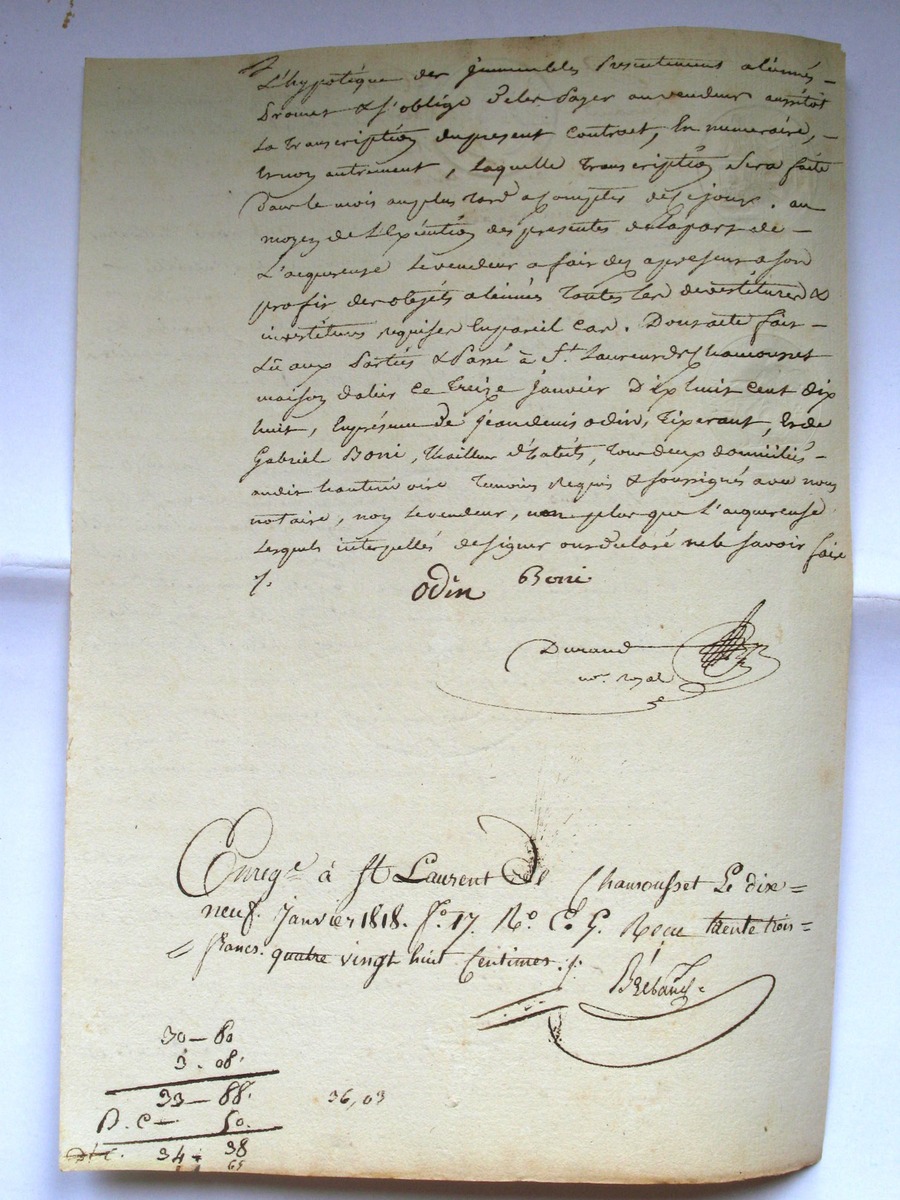 L'hypotéque des jmmeubles presentement aliénés -
Promet & s'oblige de les payer au vendeur aussitôt
La transcription du present contrat, En numeraire, -
Et non autrement, Laquelle transcription Sera faite
Dans le mois au plus tard a Compter de ce jour. au
moyen de L'Exécution des presentes de la part de -
L'acquereuse Le vendeur a fait des a present a son
profit des objets aliénés toutes les devestitures &
investitures requises En pareil cas. Dont acte fait -
Lû aux Parties & Passé à St. Laurent de Chamousset
maison d'alier Ce treize janvier Dix huit cent dix
huit, En présence de jean denis odin, Tixerant, Et de
Gabriel Boni, thailleur d'habits, tous deux domiciliés -
audit hauterivoire temoins Requis & soussignés avec nous
notaire, non Le vendeur, non plus que L'acquereuse
Lesquels interpellés de signer ont déclaré ne le savoir faire
/.
odin Boni
Durand
nre. royal
Enregé à St Laurent De Chamousset Le dix=
neuf. Janvier 1818. fo. 17. Ro. C. 9. Recu trente trois=
= francs. quatre vingt huit Centimes. /.
30 - 80
3 . 08.
33 - 88.
36,03
D. C - 50.
34 = 38
65